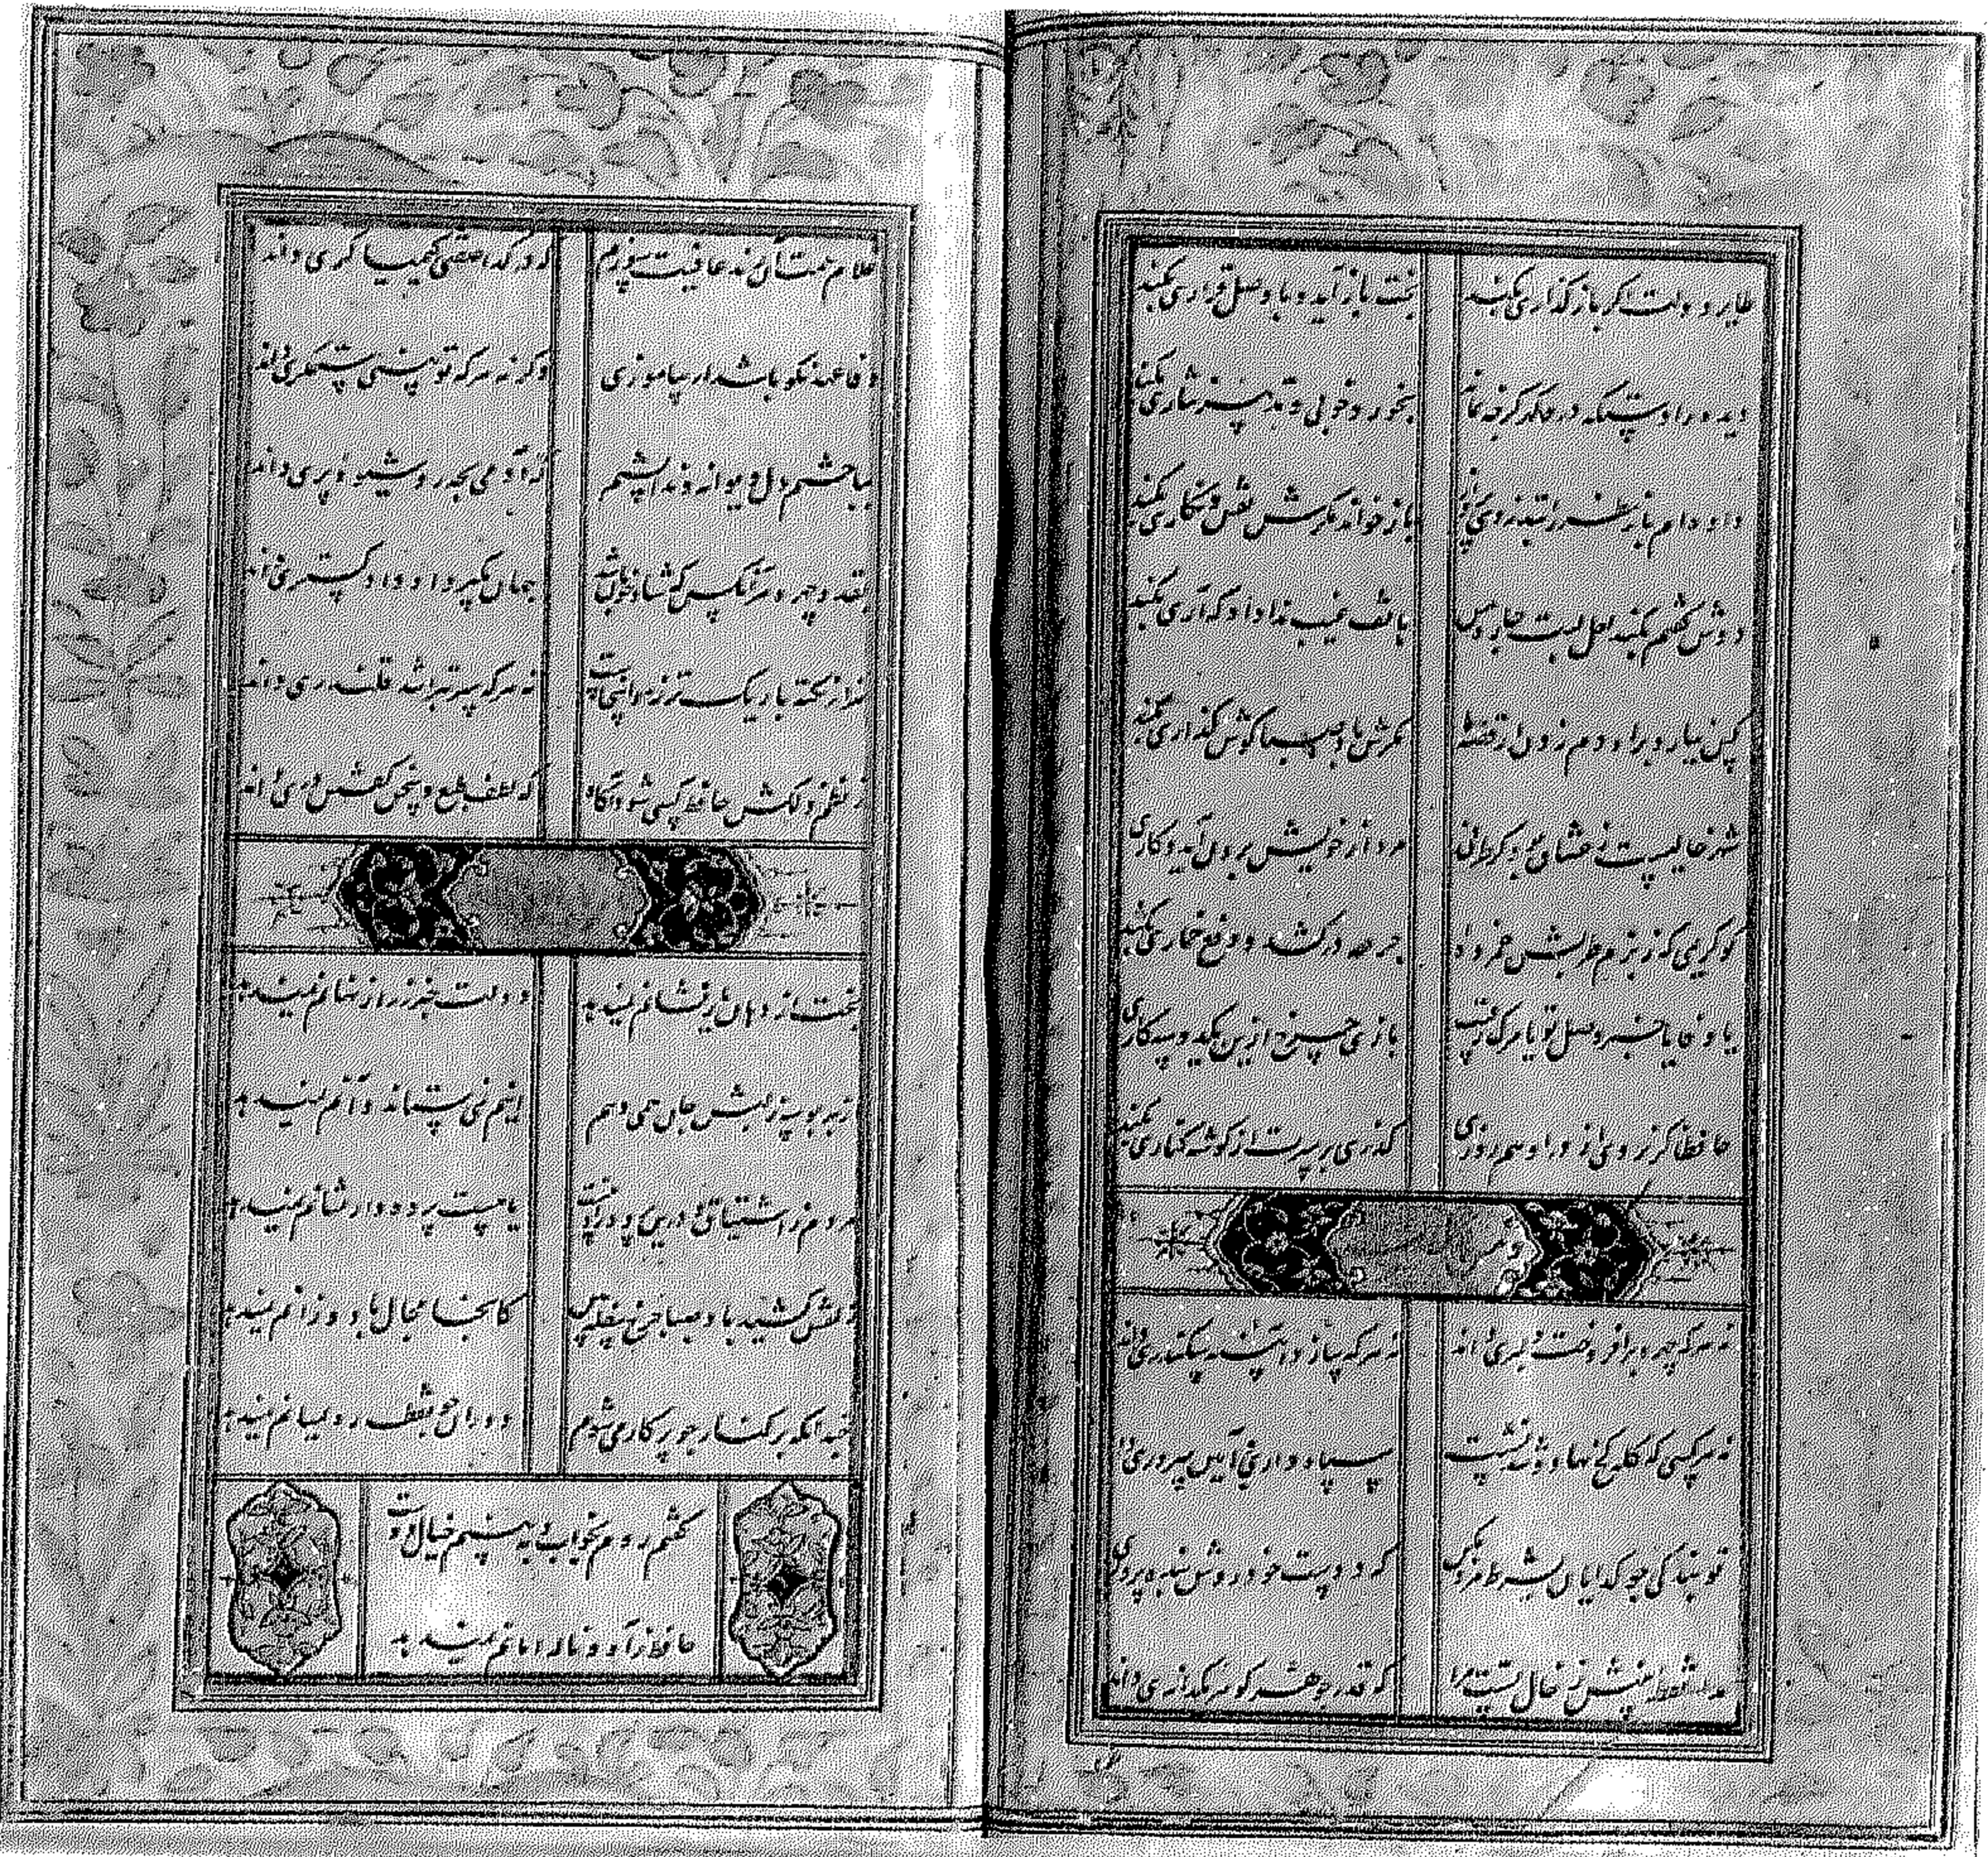 طایر دولت اگر باز گذاری بکند بخت باز آید و با وصل قراری بکند
دیده را دستگه در و گهر گرچه نماند بخورد خونی و تدبیر نثاری بکند
داده‌ام باز نظر را بتذروی پرواز باز خواند مگرش نقش و شکاری بکند
دوش گفتم بکند لعل لبت چاره من هاتف غیب ندا داد که آری بکند
کس نیارد بر او دم زدن از قصه ما مگرش باد صبا گوش گذاری بکند
شهر خالیست ز عشاق بود کز طرفی مرد از خویش برون آید و کاری
کو کریمی که ز بزم طربش غمزده جرعه درکشد و دفع خماری بکند
یا وفا یا خبر وصل تو یا مرگ رقیب بازی چرخ ازین یکدو سه کاری
حافظا گر نروی از در او هم روزی گذری بر سرت از گوشه کناری بکند
وله
نه هر که چهره برافروخت دلبری داند نه هر که سازد آینه سکندری داند
نه هر کسی که کله کج نهاد و تند نشست سپاه داری و آیین سروری داند
تو بندگی چو گدایان بشرط مزد مکن که دوست خود روش بنده پروری داند
مدار نقطه بینش ز خال تست مرا که قدر جوهر کو هر یکدانه ی داند
غلام همت آن رند عافیت سوزم که در گدا صفتی کیمیا گری داند
وفا عهد نکو باشد ار بیاموزی وگرنه هر که تو بینی ستمگری داند
بباختم دل دیوانه و ندانستم که آدمی بچه‌ای شیوه پری داند
بقد و چهره هر آنکس که شاه خوبان شد جهان بگیرد اگر دادگستری داند
هزار نکته باریک‌تر ز مو اینجاست نه هر که سر بتراشد قلندری داند
ز نظم دلکش حافظ کسی شود آگاه که لطف طبع و سخن گفتن دری داند
بخت از دهان یار نشانم نمیدهد دولت خبر ز راز نهانم نمیدهد
از بهر بوسه ز لبش جان همی دهم اینم نمی‌ستاند و آنم نمیدهد
مردم ز اشتیاق و درین پرده راه نیست یا هست پرده‌دار نشانم نمیدهد
زلفش کشید باد صبا چرخ سفله بین کانجا مجال باد وزانم نمیدهد
چندانکه بر کنار چو پرگار می‌شدم دوران چو نقطه ره بمیانم نمیدهد
گفتم روم بخواب و ببینم خیال دوست
حافظ ز آه و ناله امانم نمیدهد